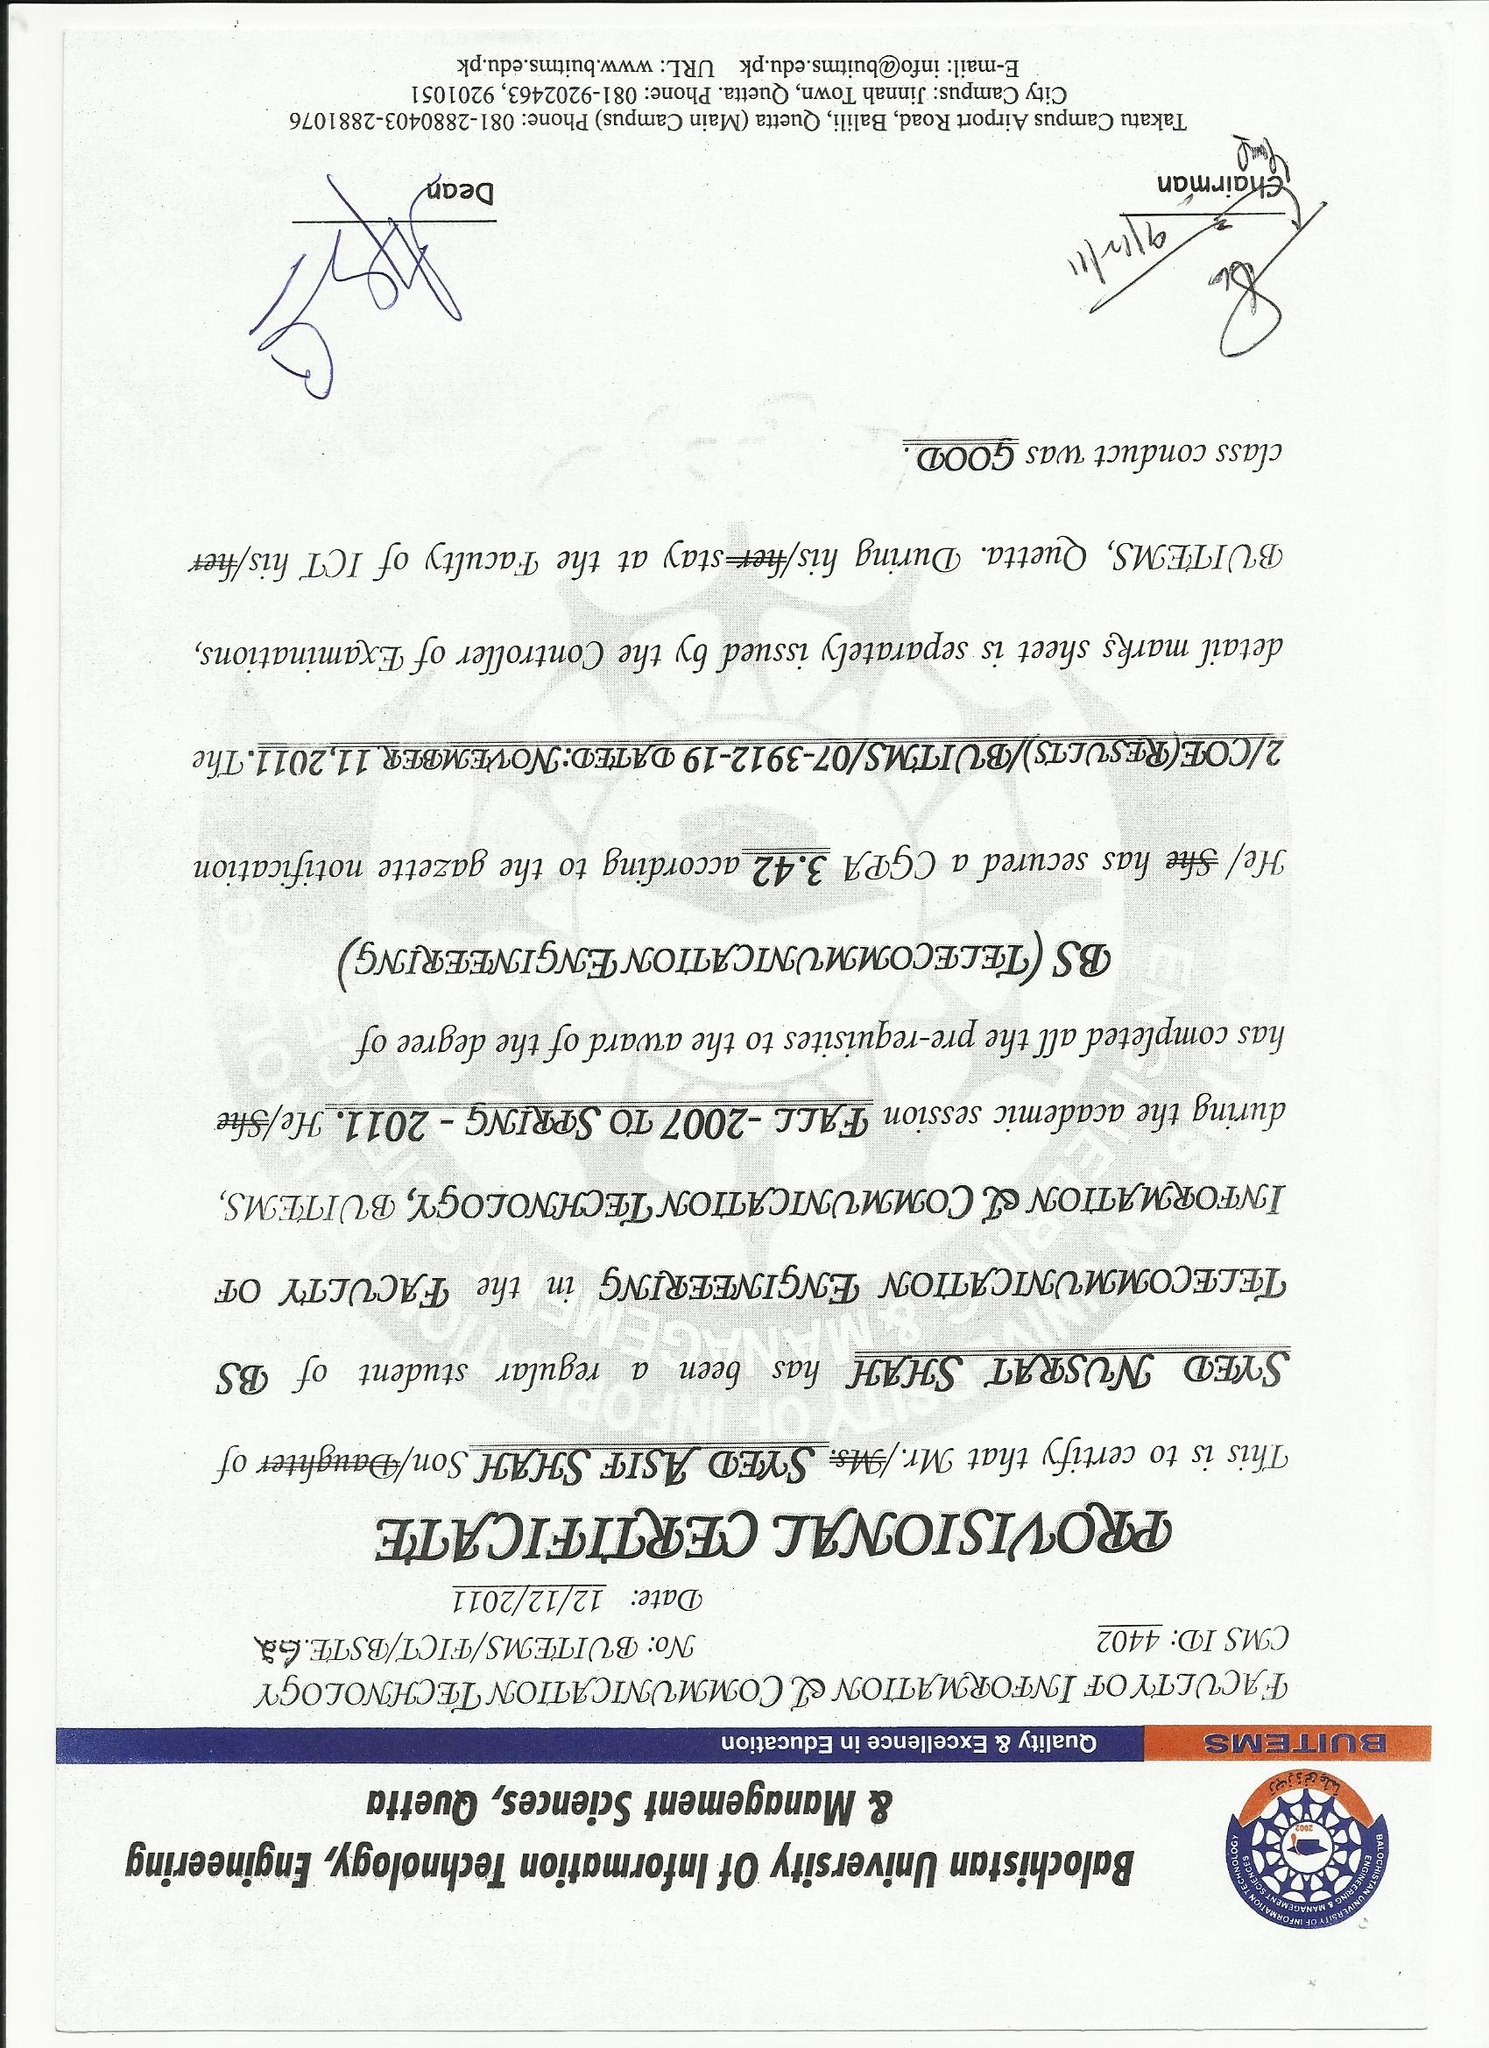 Balochistan University Of Information Technology, Engineering
& Management Sciences, Quetta
BALOCHISTAN UNIVERSITY OF INFORMATION TECHNOLOGY
ENGINEERING & MANAGEMENT SCIENCES
2002
BUITEMS Quality & Excellence in Education
FACULTY OF INFORMATION & COMMUNICATION TECHNOLOGY
CMS ID: 4402 No: BUITEMS/FICT/BSTE.
Date: 12/12/2011
PROVISIONAL CERTIFICATE
This is to certify that Mr./Ms. SYED ASIF SHAH Son/Daughter of
SYED NUSRAT SHAH has been a regular student of BS
TELECOMMUNICATION ENGINEERING in the FACULTY OF
INFORMATION & COMMUNICATION TECHNOLOGY, BUITEMS,
during the academic session FALL -2007 TO SPRING - 2011. He/She
has completed all the pre-requisites to the award of the degree of
BS (TELECOMMUNICATION ENGINEERING)
He/ She has secured a CGPA 3.42 according to the gazette notification
2/COE(RESULTS)/BUITMS/07-3912-19 DATED:NOVEMBER 11,2011. The
detail marks sheet is separately issued by the Controller of Examinations,
BUITEMS, Quetta. During his/her stay at the Faculty of ICT his/her
class conduct was GOOD.
Chairman Dean
Takatu Campus Airport Road, Balili, Quetta (Main Campus) Phone: 081-2880403-2881076
City Campus: Jinnah Town, Quetta. Phone: 081-9202463, 9201051
E-mail: info@buitms.edu.pk URL: www.buitms.edu.pk